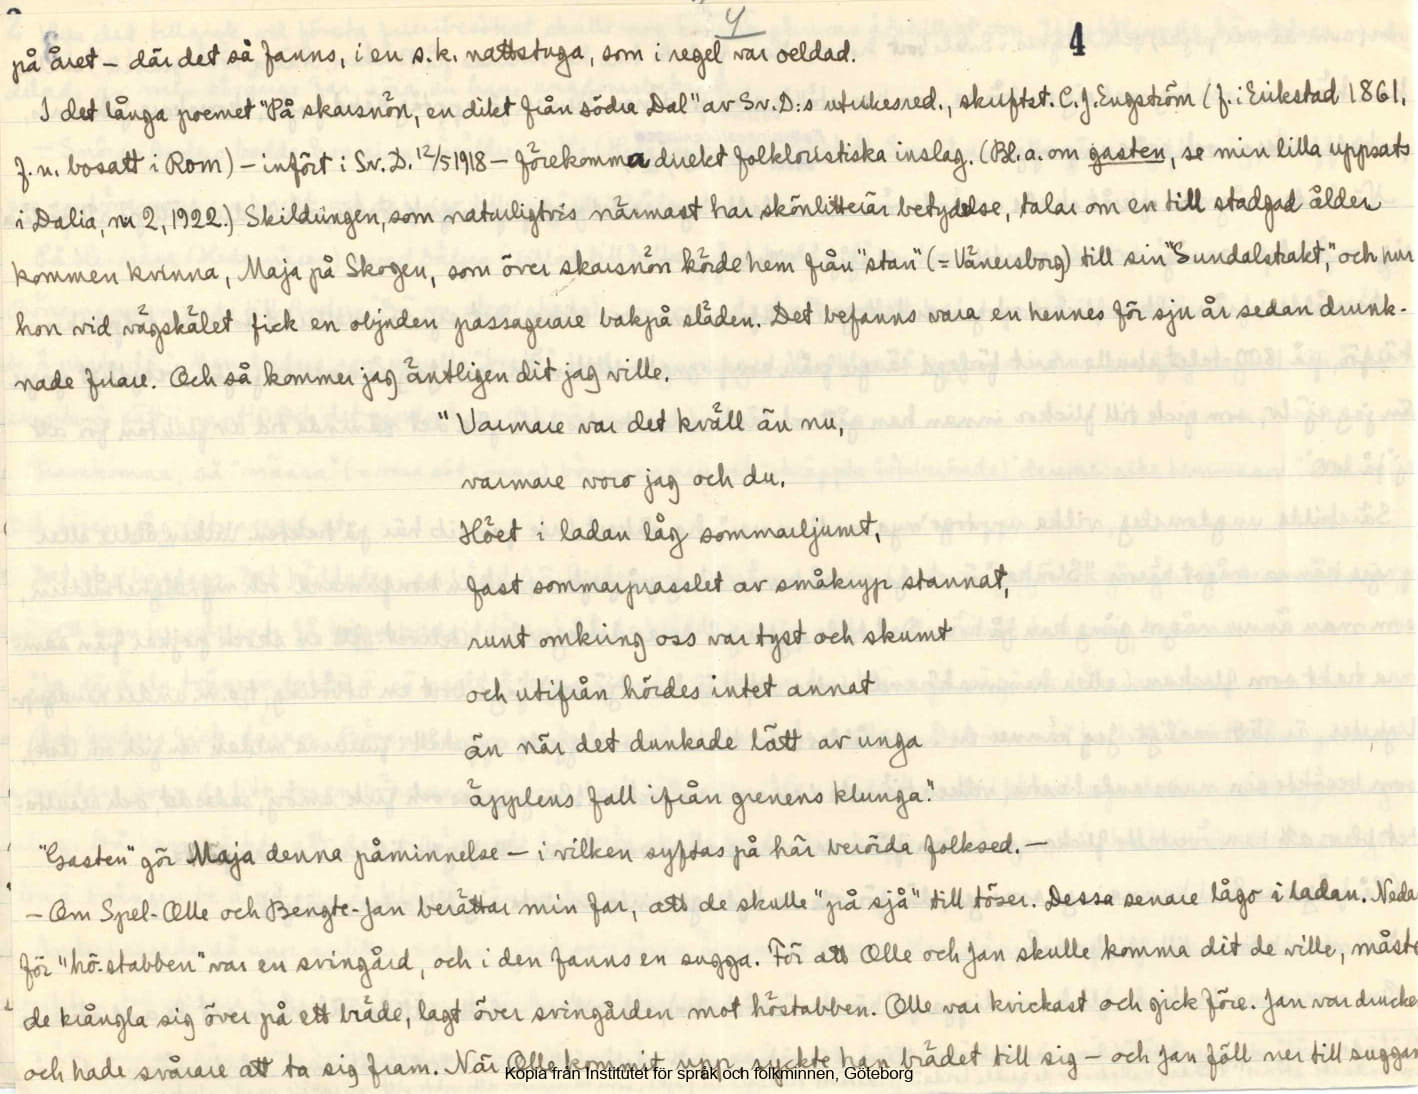 4
4
på året – där det så fanns, i en s.k. nattstuga, som i regel var oeldad.
I det långa poemet "På skarsnön, en dikt från södra Dal" av Sv.D:s utrikesred., skriftst. C.J. Engström (f. i Erikstad 1861,
f.n. bosatt i Rom) – infört i Sv.D. 12/5 1918 – förekomma direkt folkloristiska inslag. (Bl.a. om gasten, se min lilla uppsats
i Dalia, nr 2, 1922.) Skildringen, som naturligtvis närmast har skönlitterär betydelse, talar om en till stadgad ålder
kommen kvinna, Maja på Skogen, som över skarsnön körde hem från "stan" (= Vänersborg) till sin "Sundalstrakt", och hur
hon vid vägskälet fick en objuden passagerare bakpå släden. Det befanns vara en hennes för sju år sedan drunk-
nade friare. Och så kommer jag äntligen dit jag ville.
"Varmare var det kväll än nu,
varmare voro jag och du.
Höet i ladan låg sommarljumt,
fast sommarprasslet av småkryp stannat,
runt omkring oss var tyst och skumt
och utifrån hördes intet annat
än när det dunkade lätt av unga
äpplens fall ifrån grenens klunga."
"Gasten" gör Maja denna påminnelse – i vilken syftas på här berörda folksed. –
– Om Spel-Olle och Bengte-Jan berättar min far, att de skulle "på sjå" till töser. Dessa senare lågo i ladan. Neda
för "hö-stabben" var en svingård, och i den fanns en sugga. För att Olle och Jan skulle komma dit de ville, måste
de krångla sig över på ett bräde, lagt över svingården mot höstabben. Olle var kvickast och gick före. Jan var drucken
och hade svårare att ta sig fram. När Olle kommit upp ryckte han brädet till sig – och Jan föll ner till suggan
Kopia från Institutet för språk och folkminnen, Göteborg